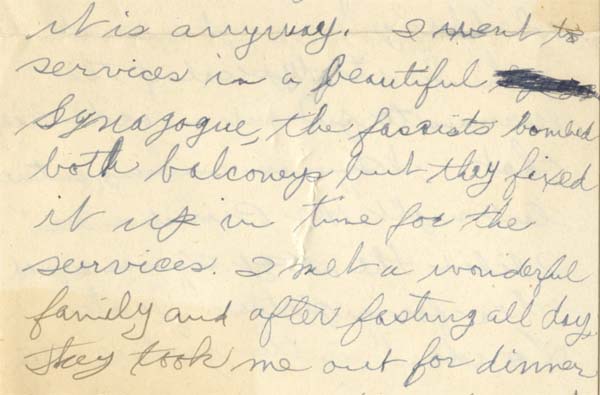 it is anyway. I went to
services in a beautiful
Synagogue, the fascists bombed
both balconeys but they fixed
it up in time for the
services. I met a wonderful
family, and after fasting all day,
they took me out for dinner